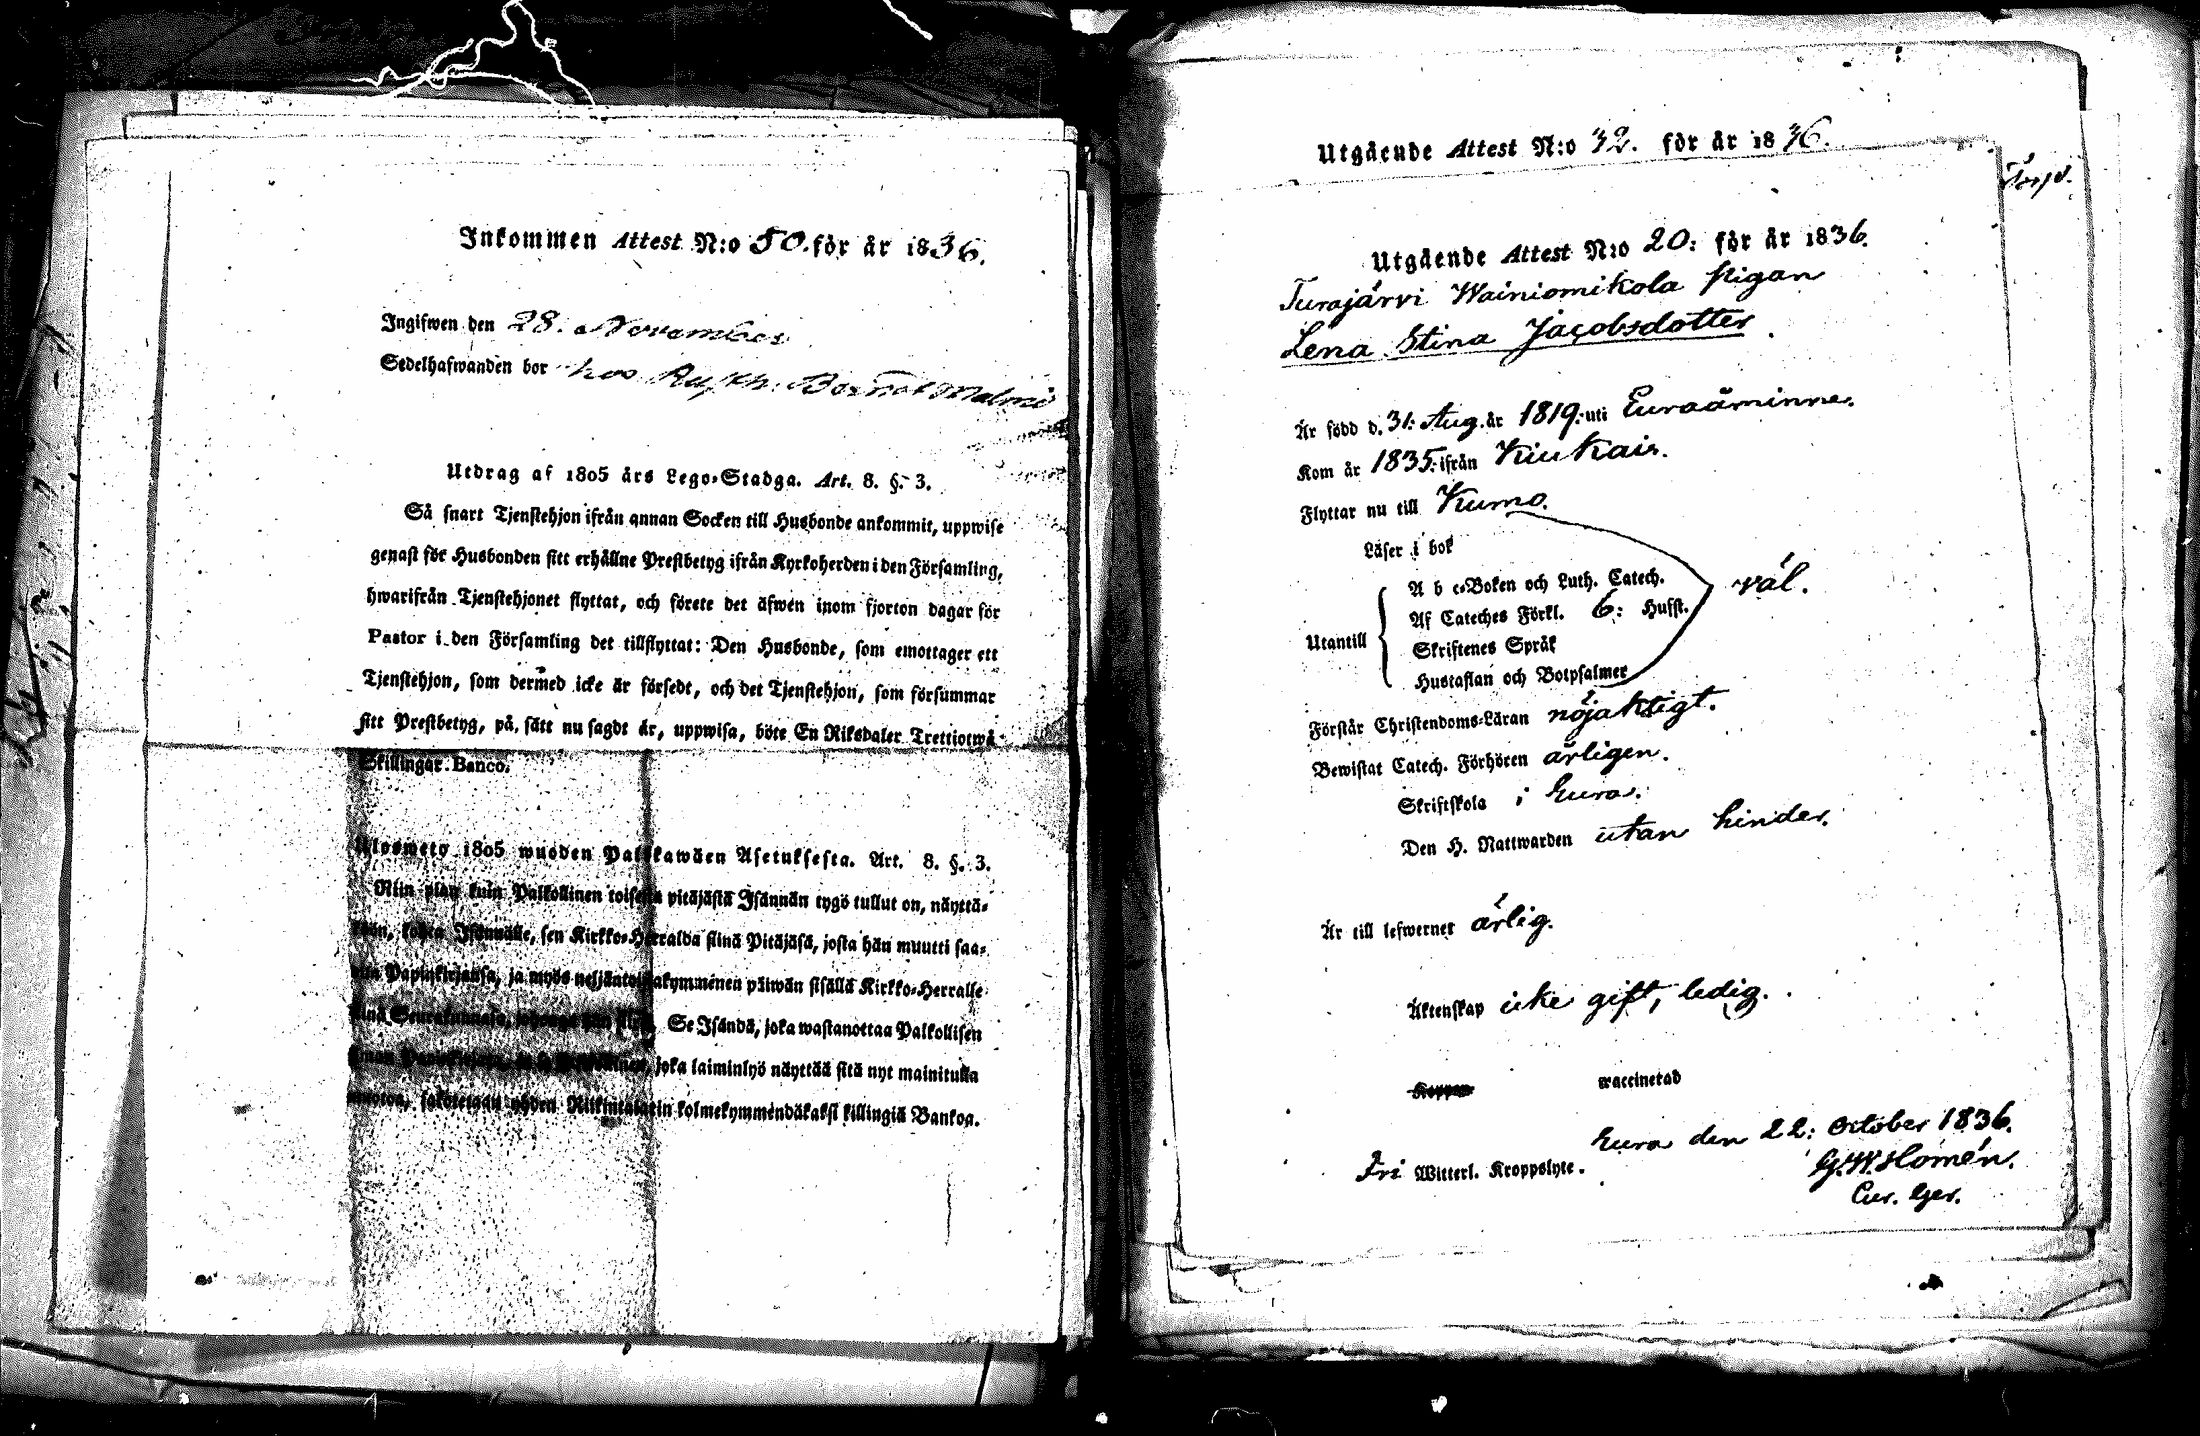 Inkommen Attest N:o 50. för år 1836.
Ingifwen den 28. November
Sedelhafwanden bor hos Rusth. Malmi
Utdrag af 1805 års Lego-Stadga. Art. 8. §. 3.
Så snart Tjenstehjon ifrån annan Socken till Husbonde ankommit, uppwise
genast för Husbonden sitt erhållne Prestbetyg ifrån Kyrkoherden i den Församling,
hwarifrån Tjenstehjonet flyttat, och förete det äfwen inom fjorton dagar för
Pastor i den Församling det tillflyttat: Den Husbonde, som emottager ett
Tjenstehjon, som dermed icke är försedt, och det Tjenstehjon, som försummar
sitt Prestbetyg, på, sätt nu sagdt är, uppwisa, böte En Riksdaler Trettiotwå
Skillingar Banco.
Ulosweto 1805 wuoden Palkkawäen Asetuksesta. Art. 8. §. 3.
Niin pian kuin Palkollinen toisesta pitäjästä Isännän tygö tullut on, näyttä-
kään, kohta Isännälle, sen Kirkko-Herralda siinä Pitäjäsä, josta hän muutti saa-
dun Papinkirjansa, ja myös neljäntoistakymmenen päiwän sisällä Kirkko-Herralle
siinä Seurakunnasa, Se Isändä, joka wastanottaa Palkollisen
joka laiminlyö näyttää sitä nyt mainitulla
muotoa, sakotetaan yhden Riikintalarin kolmekymmendäkaksi killingiä Bankoa.
Utgående Attest N:o 32. för år 1836.
Utgående Attest N:o 20: för år 1836.
Turajärvi Wainiomikola pigan
Lena Stina Jacobsdotter.
Är född d. 31: Aug. år 1819: uti Euraåminne.
Kom år 1835: ifrån Kiukais.
Flyttar nu till Kumo.
Läser i bok
A b c-Boken och Luth. Catech.
väl.
Af Cateches Förkl. 6: Hufst.
Utantill
Skriftenes Språk
Hustaflan och Botpsalmer
Förstår Christendoms-Läran nöjaktigt.
Bewistat Catech. Förhören årligen.
Skriftskola i Eura.
Den H. Nattwarden utan hinder.
Är till lefwernet ärlig.
Äktenskap icke gift, ledig.
Koppor waccinerad
Eura den 22: October 1836.
Fri Witterl. Kroppslyte.
G. W. Homén.